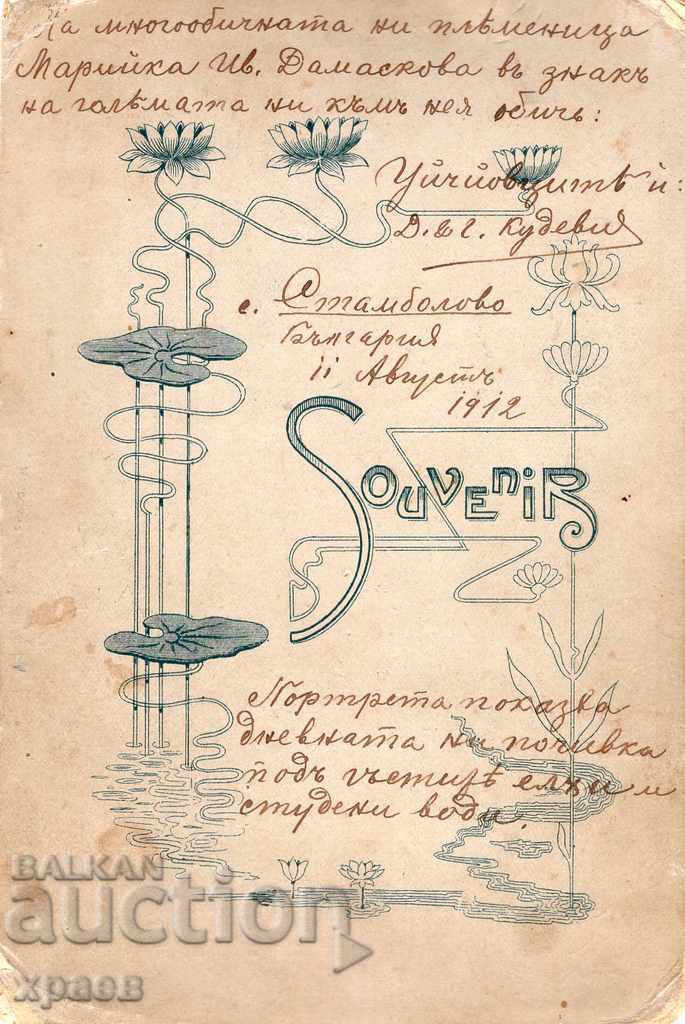 На многообичната ни плѣменица
Марийка Ив. Дамаскова въ знакъ
на голѣмата ни къмъ нея обичь:
Уйчйовцитѣ й:
Д. & г. Кудевия
с. Стамболово
България
11 Августъ
1912
Souvenir
Портрета показва
дневната ни почивка
подъ гъстирѣ елхи и
студени води.
BALKAN
auction
храов